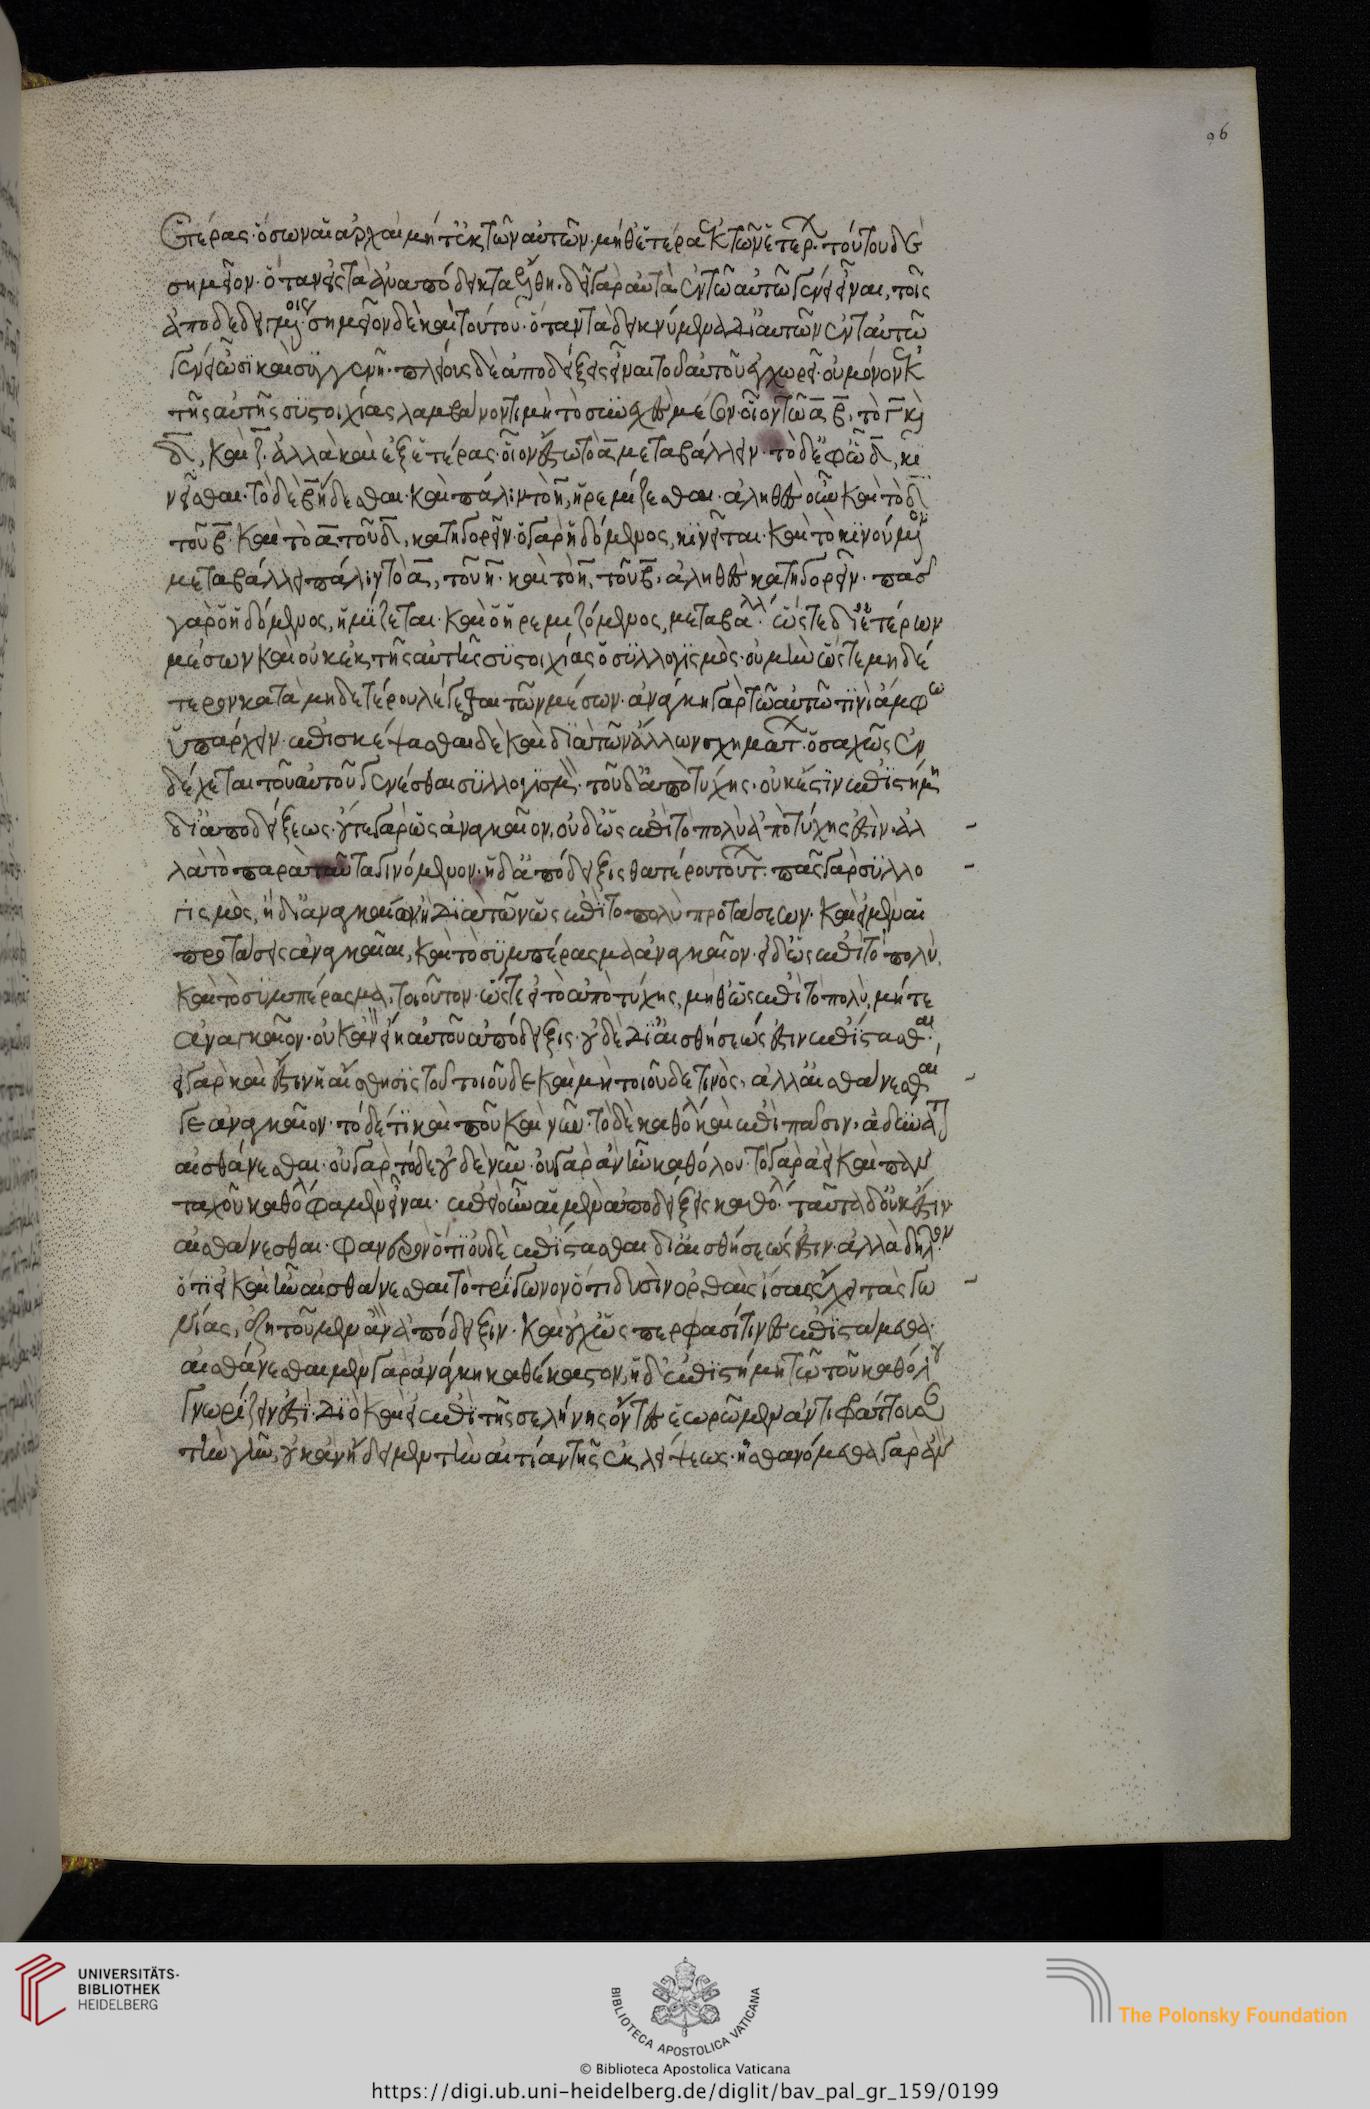 ἑτέρας· ὅσων αἱ ἀρχαὶ μήτ' ἐκ τῶν αὐτῶν· μήθ' ἕτεραι ἐκ τῶν ἑτέρων· τούτου δὲ
σημεῖον· ὅταν εἰς τὰ ἀναπόδεικτα ἔλθη· δεῖ γὰρ αὐτὰ ἐν τῶ αὐτῶ γένει εἶναι, τοῖς
ἀποδεδειγμένοις· σημεῖον δὲ καὶ τούτου· ὅταν τὰ δεικνύμενα δι' αὐτῶν ἐν ταὐτῶ
γένει ὦσι καὶ συγγενῆ· πλείους δὲ ἀποδείξεις εἶναι τοῦ αὐτοῦ ἐγχωρεῖ· οὐ μόνον ἐκ
τῆς αὐτῆς συστοιχίας λαμβάνοντι μὴ τὸ συνεχὲς μέσον· οἷον τῶ α β, τὸ γ καὶ
δ, καὶ ζ· ἀλλὰ καὶ ἐξ ἑτέρας· οἷον ἔστω τὸ α μεταβάλλειν· τὸ δὲ ἐφ' ᾧ δ, κι
νεῖσθαι· τὸ δὲ β ἥδεσθαι· καὶ πάλιν τὸ η, ἠρεμίζεσθαι· ἀληθὲς οὖν καὶ τὸ δ
τοῦ β· καὶ τὸ α τοῦ δ, κατηγορεῖν· ὁ γὰρ ἡδόμενος, κινεῖται· καὶ τὸ κινούμενον
μεταβάλλει πάλιν τὸ α, τοῦ η· καὶ τὸ η, τοῦ β· ἀληθὲς κατηγορεῖν· πᾶς
γὰρ ὁ ἡδόμενος, ἠρεμίζεται· καὶ ὁ ἠρεμιζόμενος, μεταβάλλει· ὥστε δι' ἑτέρων
μέσων καὶ οὐκ ἐκ τῆς αὐτῆς συστοιχίας ὁ συλλογισμὸς· οὐ μὴν ὥστε μηδέ
τερον κατὰ μηδετέρου λέγεσθαι τῶν μέσων· ἀνάγκη γὰρ τῶ αὐτῶ τινὶ ἄμφω
ὑπάρχειν· ἐπισκέψασθαι δὲ καὶ διὰ τῶν ἄλλων σχημάτων· ὁσαχῶς ἐν
δέχεται τοῦ αὐτοῦ γενέσθαι συλλογισμόν· τοῦ δ' ἀπὸ τύχης· οὐκ ἔστιν ἐπιστήμη
δι' ἀποδείξεως· οὔτε γὰρ ὡς ἀναγκαῖον, οὔδ' ὡς ἐπὶ τὸ πολὺ ἀπὸ τύχης ἐστὶν· ἀλ
λὰ τὸ παρὰ ταῦτα γινόμενον· ἡ δ' ἀπόδειξις θατέρου τούτων· πᾶς γὰρ συλλο
γισμὸς, ἢ δι' ἀναγκαίων ἢ διὰ τῶν ὡς ἐπὶ τὸ πολὺ προτάσεων· καὶ εἰ μὲν αἱ
προτάσεις ἀναγκαῖαι, καὶ τὸ συμπέρασμα ἀναγκαῖον· εἰ δ' ὡς ἐπὶ τὸ πολὺ,
καὶ τὸ συμπέρασμα, τοιοῦτον· ὥστε εἰ τὸ ἀπὸ τύχης, μήθ' ὡς ἐπὶ τὸ πολὺ, μήτε
ἀναγκαῖον· οὐκ ἂν εἴη αὐτοῦ ἀπόδειξις· οὐδὲ δι' αἰσθήσεως ἔστιν ἐπίστασθαι·
εἰ γὰρ καὶ ἔστιν ἡ αἴσθησις τοῦ τοιοῦδε καὶ μὴ τοῦδέ τινὸς· ἀλλ' αἰσθάνεσθαί
γε ἀναγκαῖον· τόδέ τι καὶ ποῦ καὶ νῦν· τὸ δὲ καθόλου καὶ ἐπὶ πᾶσιν, ἀδύνατον
αἰσθάνεσθαι· οὐ γὰρ τόδε οὐδὲ νῦν· οὐ γὰρ ἂν ἦν καθόλου· τὸ γὰρ ἀεὶ καὶ παν
ταχοῦ καθόλου φαμὲν εἶναι· ἐπεὶ οὖν αἱ μὲν ἀποδείξεις καθόλου· ταῦτα δ' οὐκ ἔστιν
αἰσθάνεσθαι· φανερὸν ὅτι οὐδὲ ἐπίστασθαι δι' αἰσθήσεως ἔστιν· ἀλλὰ δῆλον
ὅτι εἰ καὶ ἦν αἰσθάνεσθαι τὸ τρίγωνον ὅτι δυσὶν ὀρθαῖς ἴσας ἔχει τὰς γω
νίας, ἐζητοῦμεν ἂν ἀπόδειξιν· καὶ οὐχ ὥσπερ φασί τινες ἐπιστάμεθα·
αἰσθάνεσθαι μὲν γὰρ ἀνάγκη καθέκαστον, ἡ δ' ἐπιστήμη τῶ τοῦ καθόλου
γνωρίζειν ἐστὶ· διὸ καὶ εἰ ἐπὶ τῆς σελήνης ὄντες ἑωρῶμεν ἀντιφράττουσαν
τὴν γῆν, οὐκ ἂν ᾔδειμεν τὴν αἰτίαν τῆς ἐκλείψεως· ᾐσθανόμεθα γὰρ ἂν
96
UNIVERSITÄTS-
BIBLIOTHEK
HEIDELBERG
BIBLIOTECA APOSTOLICA VATICANA
The Polonsky Foundation
© Biblioteca Apostolica Vaticana
https://digi.ub.uni-heidelberg.de/diglit/bav_pal_gr_159/0199